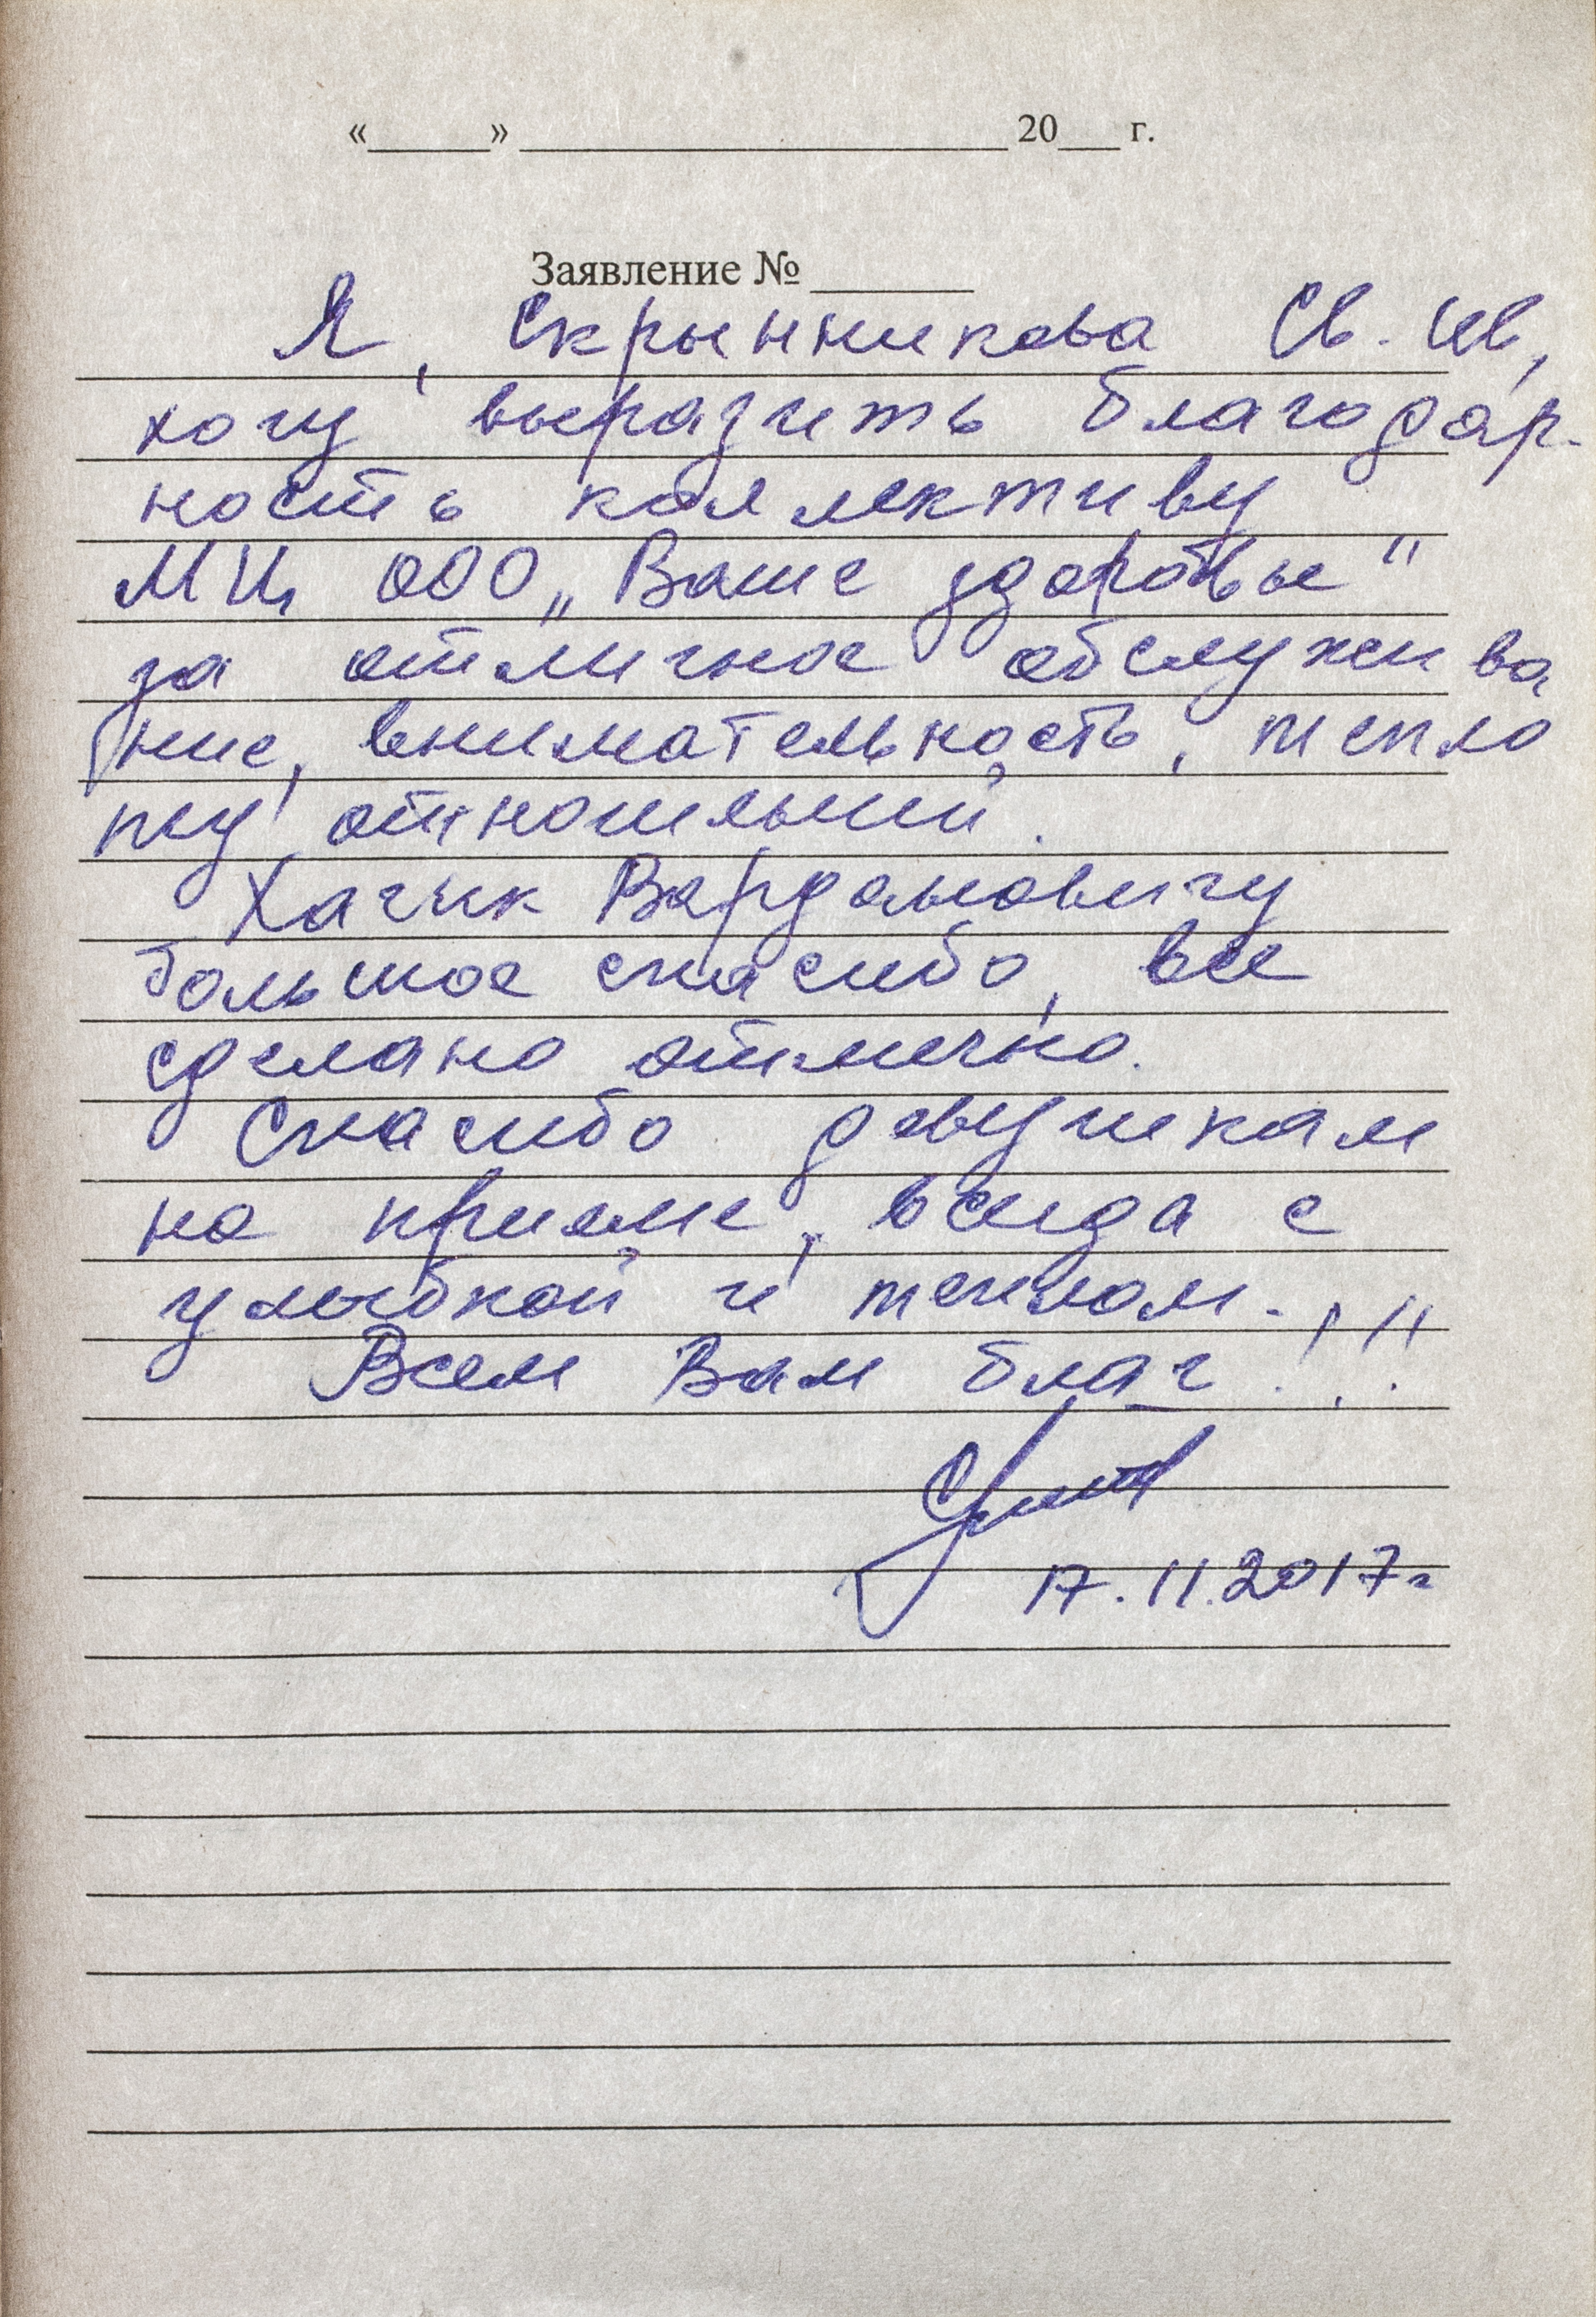 «______» ________________________ 20___ г.
Заявление № ________
Я, Скрынникова Св. Ив,
хочу выразить благодар-
ность коллективу
МЦ ООО „Ваше здоровье"
за отличное обслужива
ние, внимательность, тепло
ту отношений.
Хачик Вардановичу
большое спасибо, все
сделано отлично.
Спасибо девушкам
на приеме, всегда с
улыбкой и теплом.
Всем Вам благ!!!
17.11.2017г